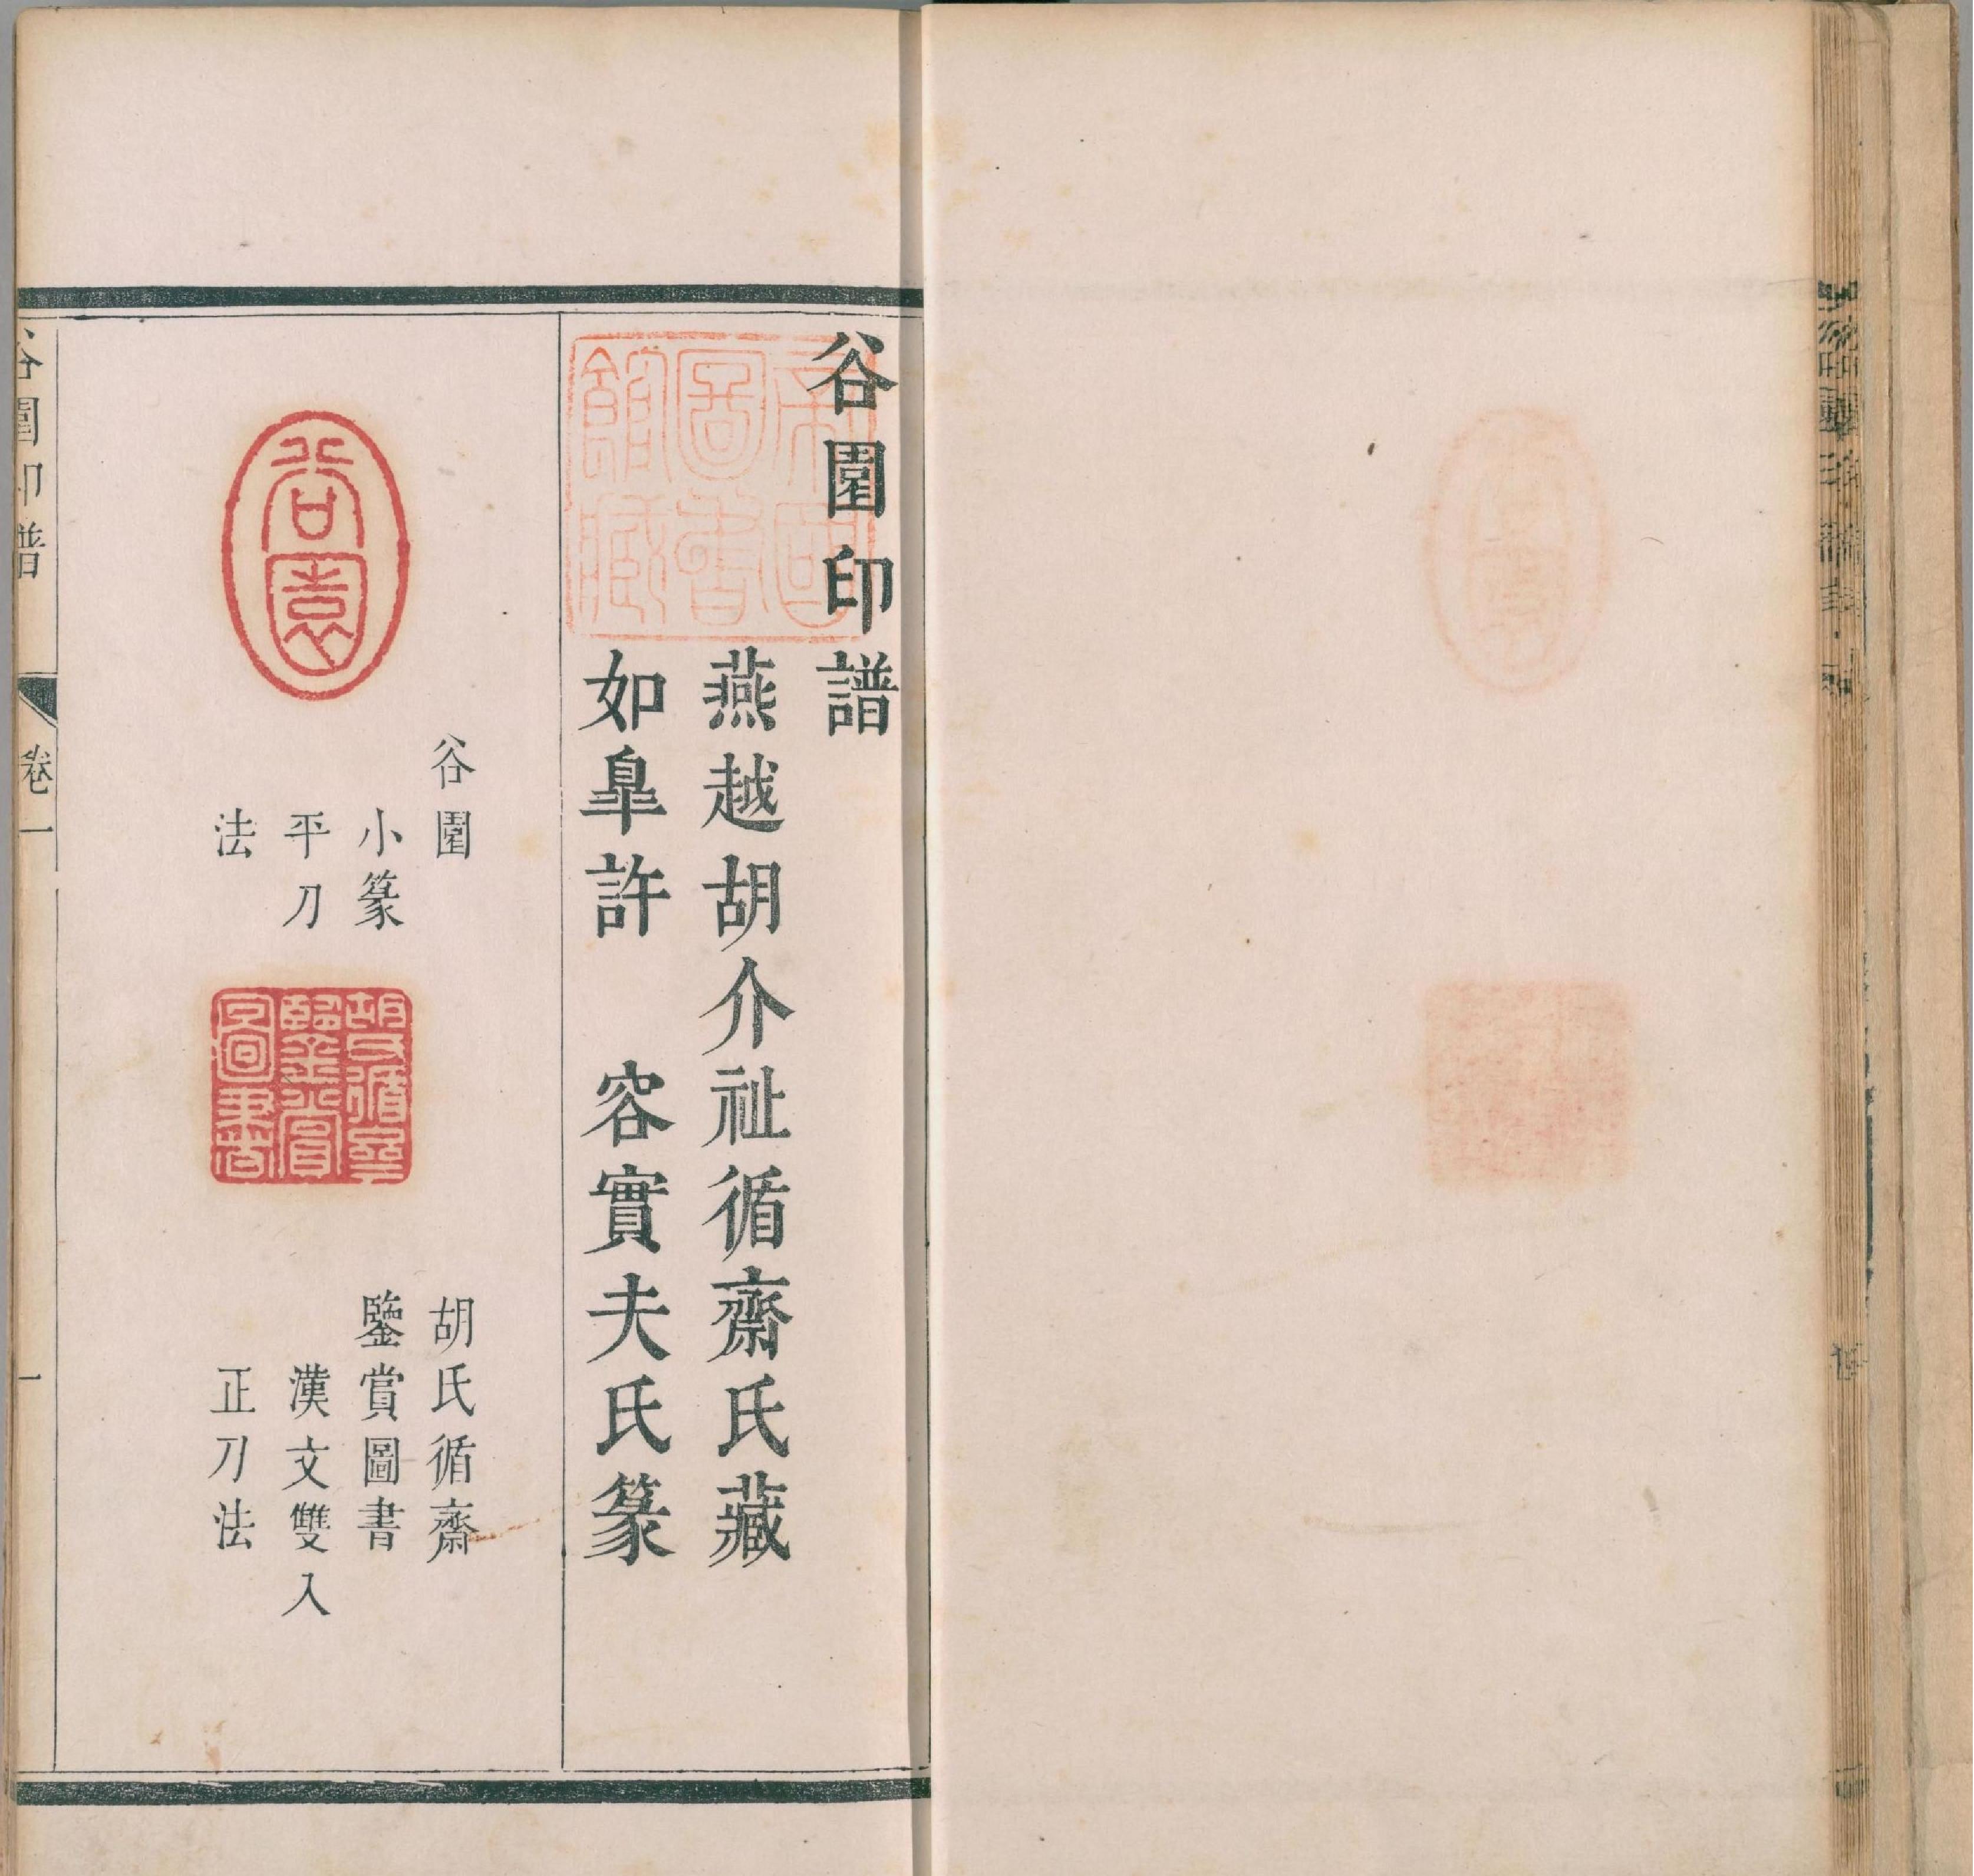 谷園印譜
燕越胡介祉循齋氏藏
如臯許　容實夫氏篆
帝國圖書館藏
谷園
谷園
小篆
平刀
法
胡氏循齋鑒賞圖書
胡氏循齋
鑒賞圖書
漢文雙入
正刀法
谷園印譜
卷一
一